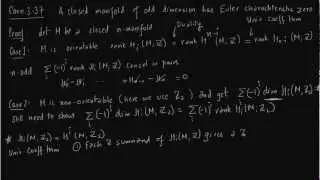 Coro. 3.37 A closed manifold of odd dimension has Euler characteristic zero
Proof Let M be a closed n-manifold
Duality
Univ coeff thm
Case 1: M is orientable rank H_i(M,Z) = rank H^{n-i}(M,Z) = rank H_{n-i}(M,Z)
n-odd Σ(-1)^i rank H_i(M,Z) cancel in pairs
Case 2: M is non-orientable (here we use Z_2) and get Σ(-1)^i dim H_i(M,Z_2)
Still need to show Σ_i (-1)^i dim H_i(M,Z_2) = Σ(-1)^i rank H_i(M,Z)
* H_i(M,Z_2) = H^i(M,Z_2)
Univ coeff thm ① Each Z summand of H_i(M,Z) gives a Z